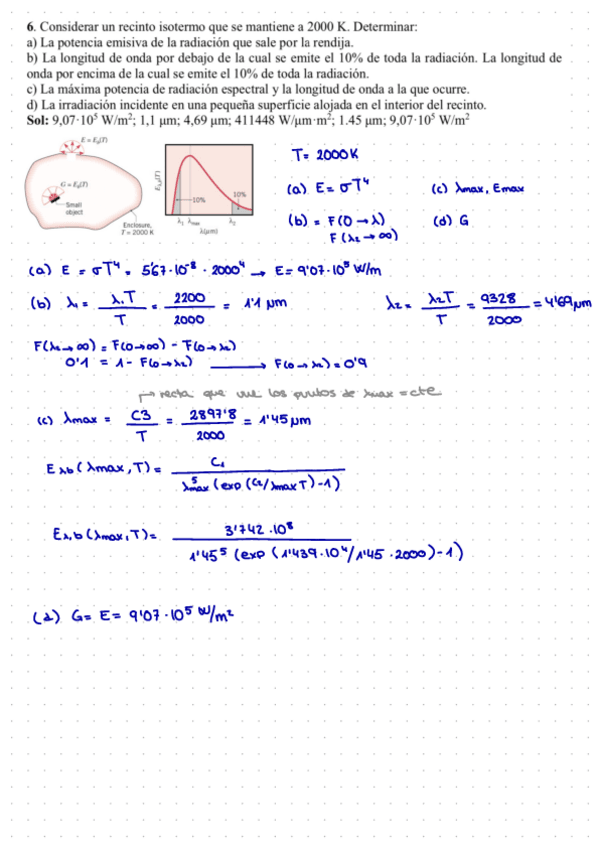 6. Considerar un recinto isotermo que se mantiene a 2000 K. Determinar:
a) La potencia emisiva de la radiación que sale por la rendija.
b) La longitud de onda por debajo de la cual se emite el 10% de toda la radiación. La longitud de
onda por encima de la cual se emite el 10% de toda la radiación.
c) La máxima potencia de radiación espectral y la longitud de onda a la que ocurre.
d) La irradiación incidente en una pequeña superficie alojada en el interior del recinto.
Sol: 9,07·10⁵ W/m²; 1,1 μm; 4,69 μm; 411448 W/μm·m²; 1.45 μm; 9,07·10⁵ W/m²
E = E_b(T)
G = E_b(T)
Small
object
Enclosure,
T = 2000 K
E_λ,b(T)
10%
10%
λ₁ λmax λ₂
λ(μm)
T = 2000K
(a) E = σT⁴ (c) λmax, Emax
(b) = F(0→λ) (d) G
F(λ₂→∞)
(a) E = σT⁴ = 5'67·10⁻⁸ · 2000⁴ → E = 9'07·10⁵ W/m
(b) λ₁ = λ₁T / T = 2200 / 2000 = 1'1 μm λ₂ = λ₂T / T = 9328 / 2000 = 4'69 μm
F(λ₂→∞) = F(0→∞) - F(0→λ₂)
0'1 = 1 - F(0→λ₂) → F(0→λ₂) = 0'9
↱ recta que une los puntos de λmax = cte
(c) λmax = C3 / T = 2897'8 / 2000 = 1'45 μm
Eλb (λmax, T) = C₁ / λ⁵max (exp (C₂/λmax T) - 1)
Eλ,b (λmax, T) = 3'742·10⁸ / 1'45⁵ (exp (1'439·10⁴/1'45·2000) - 1)
(d) G = E = 9'07·10⁵ W/m²